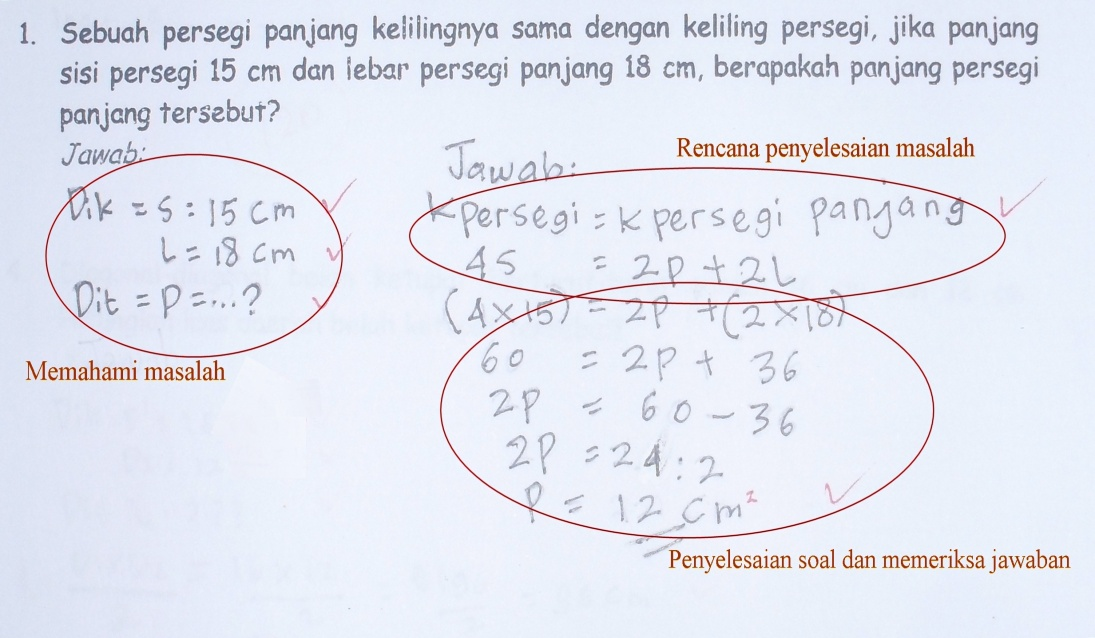 1. Sebuah persegi panjang kelilingnya sama dengan keliling persegi, jika panjang
sisi persegi 15 cm dan lebar persegi panjang 18 cm, berapakah panjang persegi
panjang tersebut?
Jawab:
Dik = S : 15 cm
L = 18 cm
Dit = P = ...?
Memahami masalah
Rencana penyelesaian masalah
Jawab:
K persegi = K persegi panjang
4S = 2P + 2L
(4 × 15) = 2P + (2 × 18)
60 = 2P + 36
2P = 60 - 36
2P = 24 : 2
P = 12 cm²
Penyelesaian soal dan memeriksa jawaban